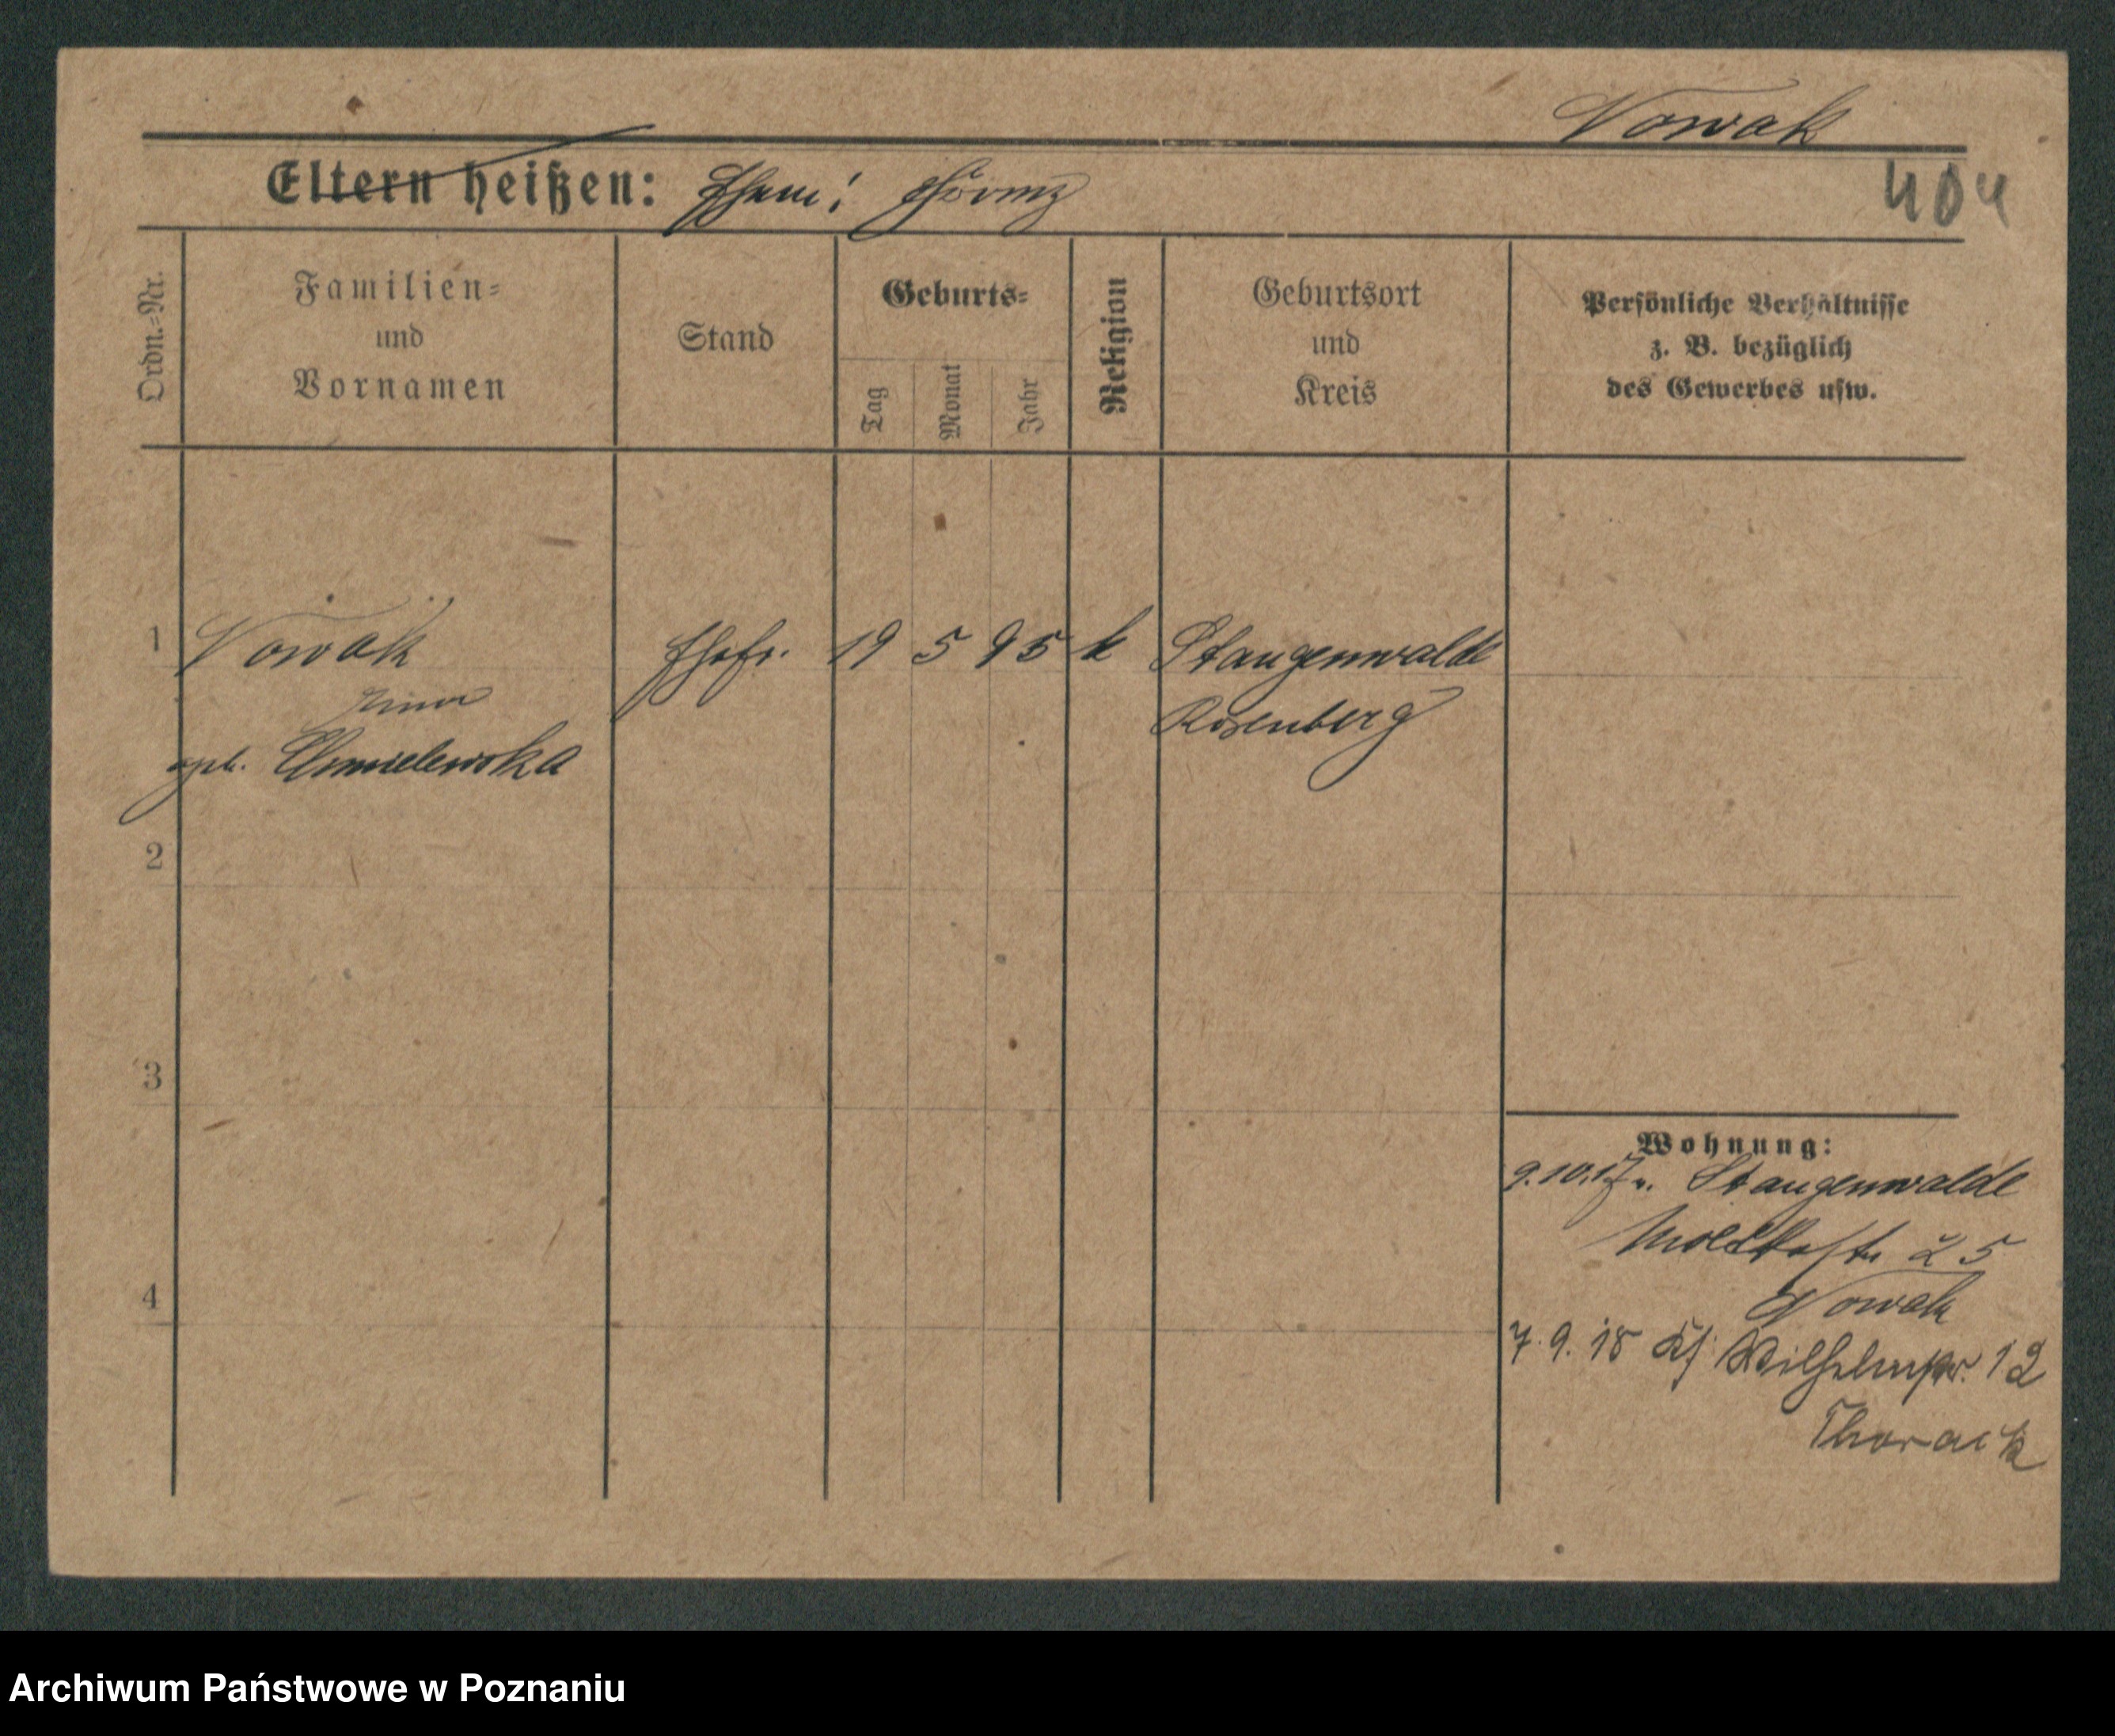 Nowak
Eltern heißen: Ehem:
404
Ordn.=Nr.
Familien=
und
Vornamen
Stand
Geburts=
Tag
Monat
Jahr
Religion
Geburtsort
und
Kreis
Persönliche Verhältnisse
z. B. bezüglich
des Gewerbes usw.
1 Nowak Ehefr. 19 5 95 k Stangenwalde
Rosenberg
geb. Chmielewska
2
3
4
Wohnung:
9.10.17 v. Stangenwalde
Moltkestr 25
Nowak
7.9.18 Wilhelmpr. 12
Thorack
Archiwum Państwowe w Poznaniu